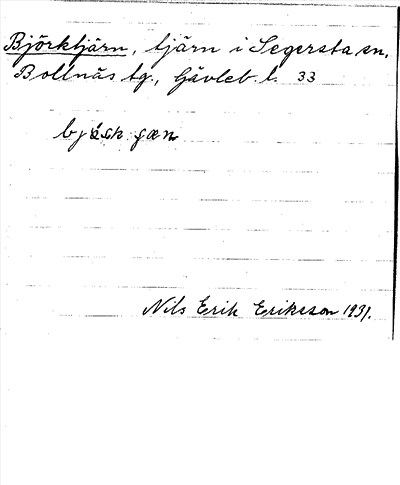 Björktjärn, tjärn i Segersta sn,
Bollnäs tg., Gävleb. l. 33
Nils Erik Eriksson 1931.